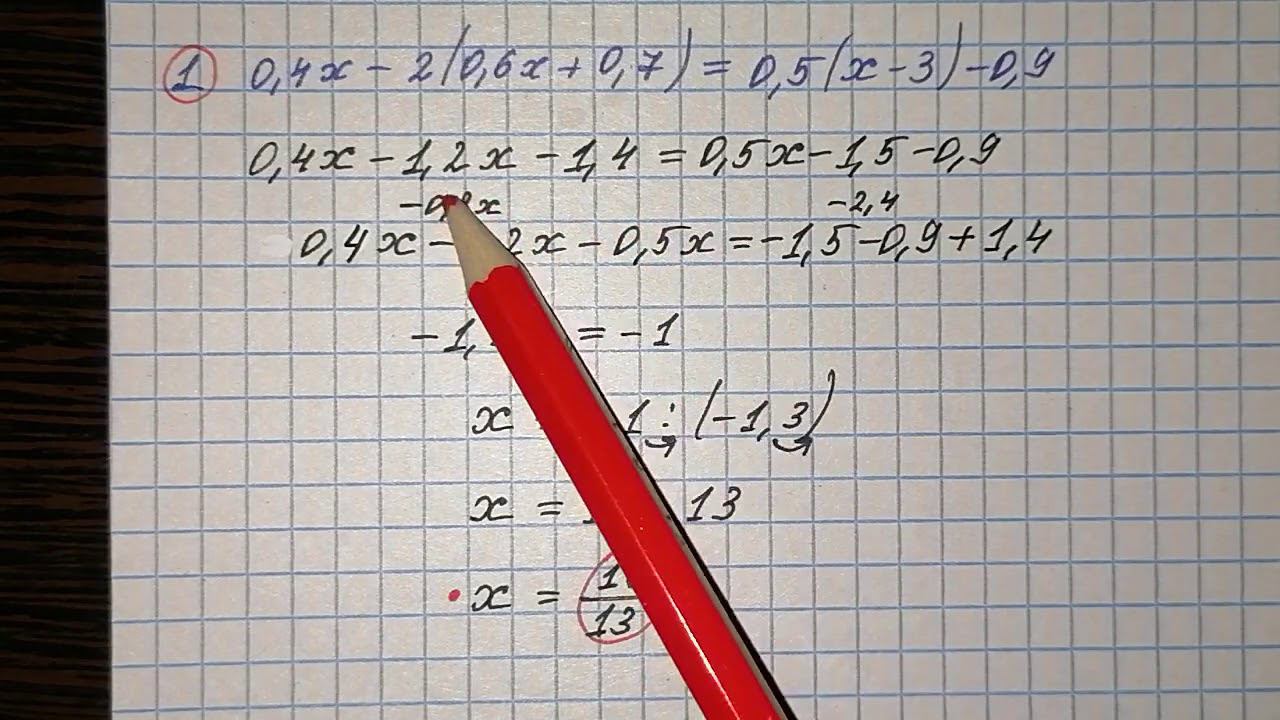 1 0,4x - 2(0,6x + 0,7) = 0,5(x - 3) - 0,9
0,4x - 1,2x - 1,4 = 0,5x - 1,5 - 0,9
-2,4
0,4x - 2x - 0,5x = -1,5 - 0,9 + 1,4
-1, = -1
x 1 : (-1,3)
x = 13
x = 1 / 13